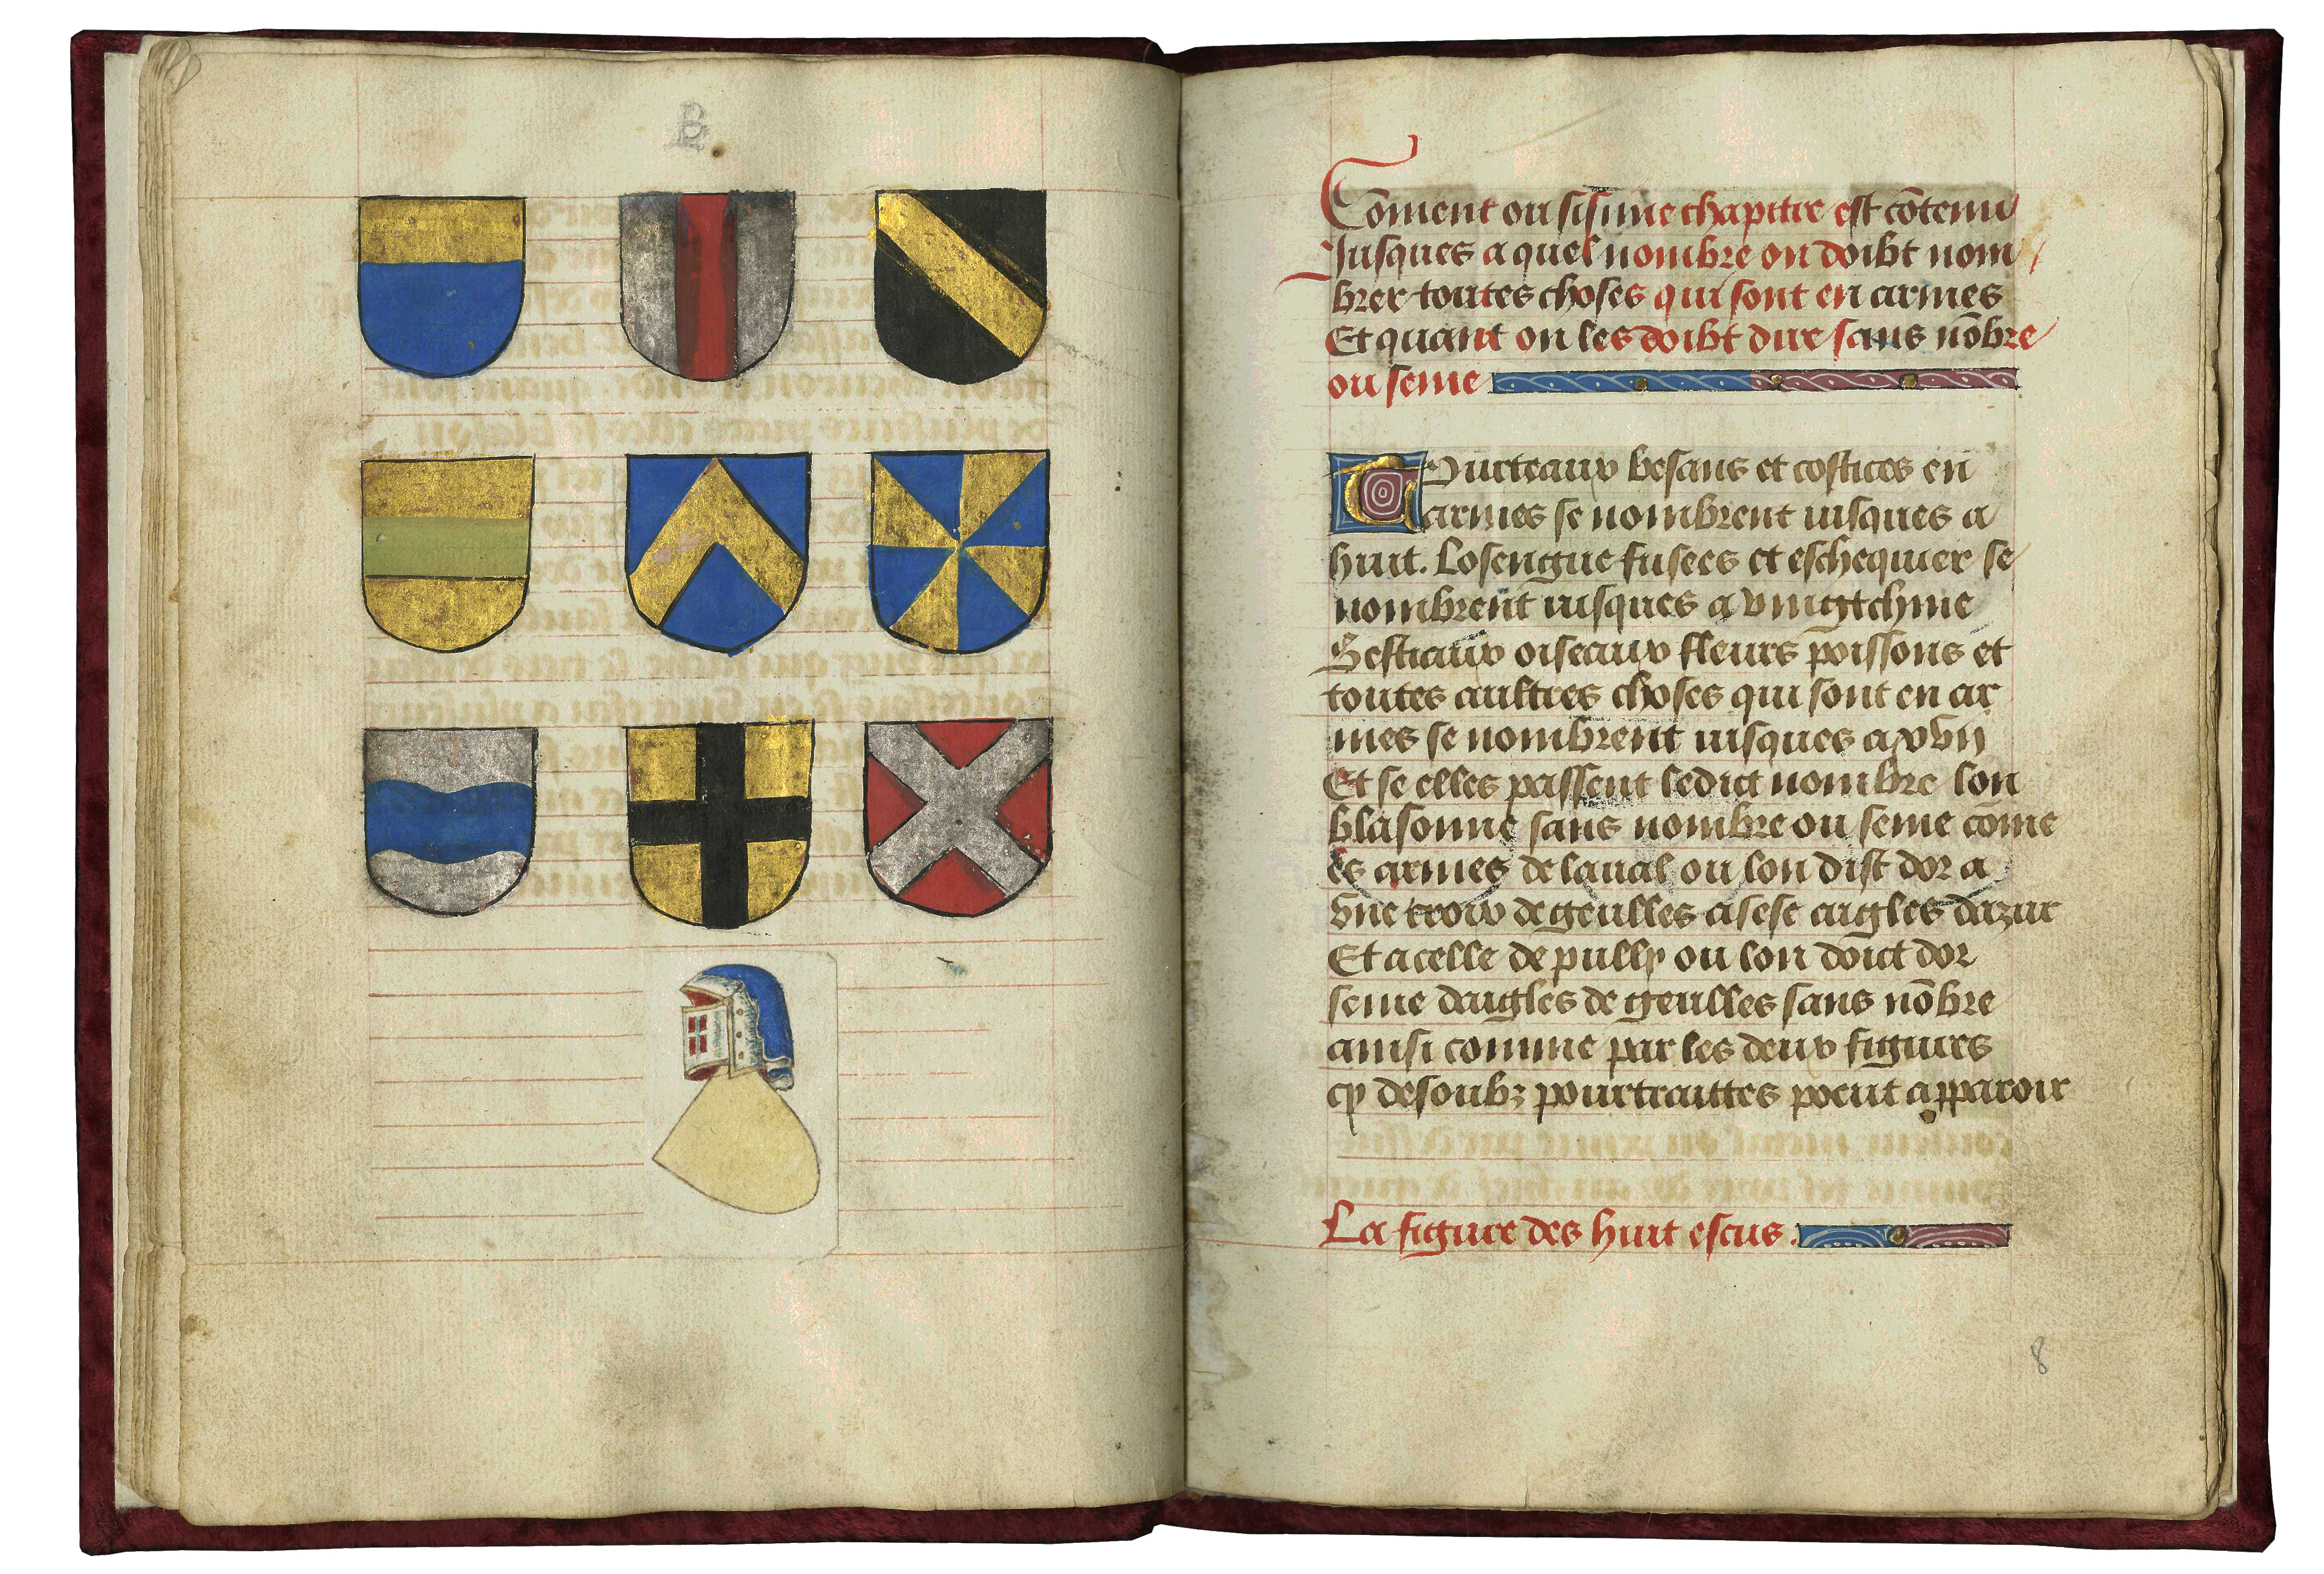 B
Cõment ou sisime chapitre est cõtenu
Jusques a quel nombre on doibt nom
brer toutes choses qui sont en armes
Et quant on les doibt dire sans nõbre
ou seme
Tourteaux besans et costices en
armes se nombrent iusques a
huit. Losengue fusees et eschequier se
nombrent iusques a
Bestiaux oiseaux fleurs poissons et
toutes aultres choses qui sont en ar
mes se nombrent iusques a xvij
Et se elles passent ledict nombre lon
blasonne sans nombre ou seme cõme
es armes de laual ou lon dist dor a
vne croix de geulles a sese aigles dazur
Et a celle de pully ou lon doict dor
seme daigles de geulles sans nõbre
ainsi comme par les deux figures
cy desoubz pourtraittes poeut apparoir
La figure des huit escus.
8